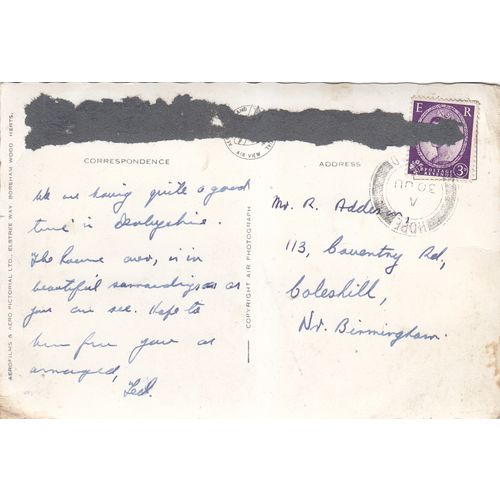 CORRESPONDENCE
ADDRESS
We are having quite a good
time in Derbyshire.
The house over, is in
beautiful surroundings as
you can see. Hope to
hear from you as
arranged,
Ted.
Mr. R. Adderson,
113, Coventry Rd,
Coleshill,
Nr. Birmingham.
E R
POSTAGE
3D
HOPE
A
30 JU
AIR VIEW
COPYRIGHT AIR PHOTOGRAPH
AEROFILMS & AERO PICTORIAL LTD., ELSTREE WAY, BOREHAM WOOD HERTS.